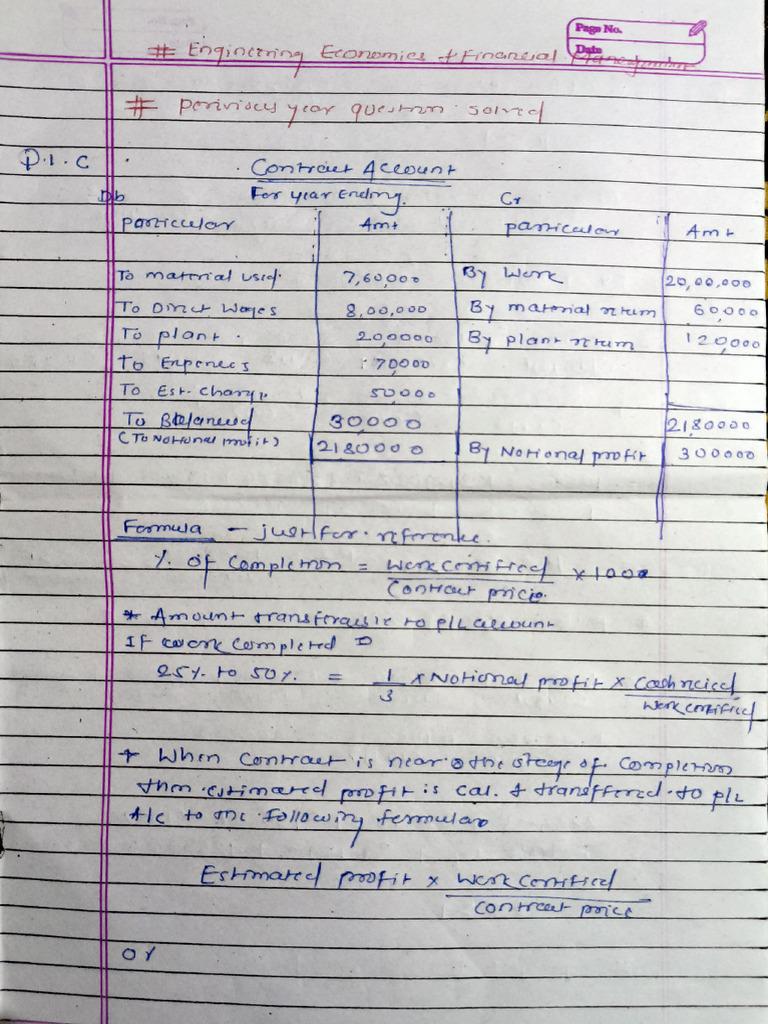 Page No.
Date
# Engineering Economics & Financial Management
# perivious year question solved
Q.1.C
Contract Account
Db For year Ending. Cr
particular Amt particular Amt
To material used. 7,60,000 By Work 20,00,000
To Direct Wages 8,00,000 By material return 60,000
To plant. 200000 By plant return 120,000
To Expences 70000
To Est. Charge 50,000
To Balanced 30,000 2180000
(To Notional profit) 2180000 By Notional profit 300000
Formula - just for reference.
% of Completion = Work Certified / Contract price. × 100
* Amount transferable to p/L account
If work completed
25% to 50% = 1/3 × Notional profit × Cash recied / Work certified
+ When Contract is near the stage of Completion
then estimated profit is cal. & transffered to p/L
A/c to the following formula
Estimated profit × Work Certified / Contract price
or